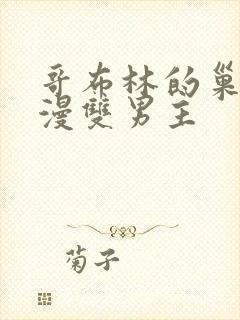 哥布林的巢
漫雙男主
菊子